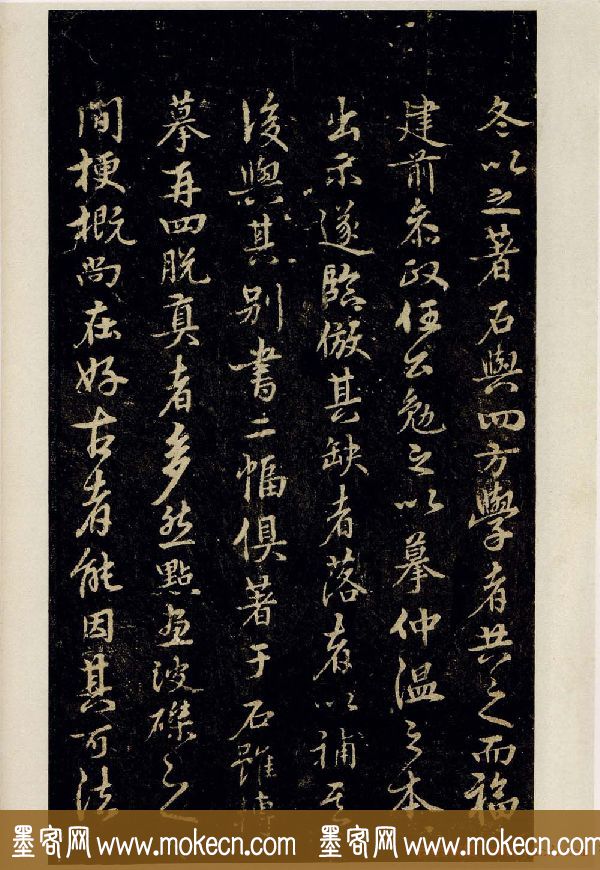 冬以之著石與四方學者共之而福
建前參政任公勉之以摹仲溫之本
出示遂臨倣其缺者落者以補其
後與其別書二幅俱著于石雖傳
摹再四脫真者多然點畫波磔之
間梗概尚在好古者能因其可法
墨客网www.mokecn.com 墨客网www.mokecn.com